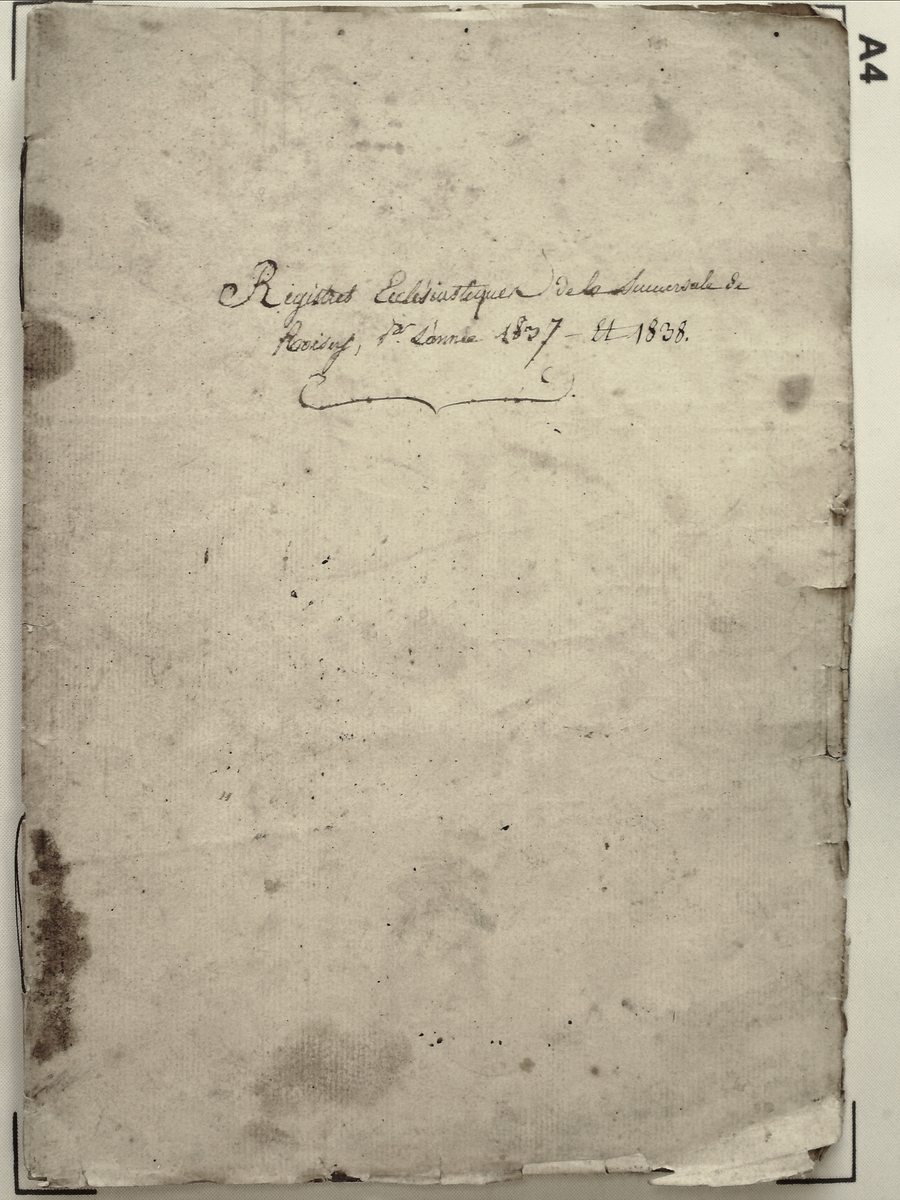 A4
Registres Ecclésiastiques de la Succursale de
Roisey, Pr. L'année 1837 - Et 1838.